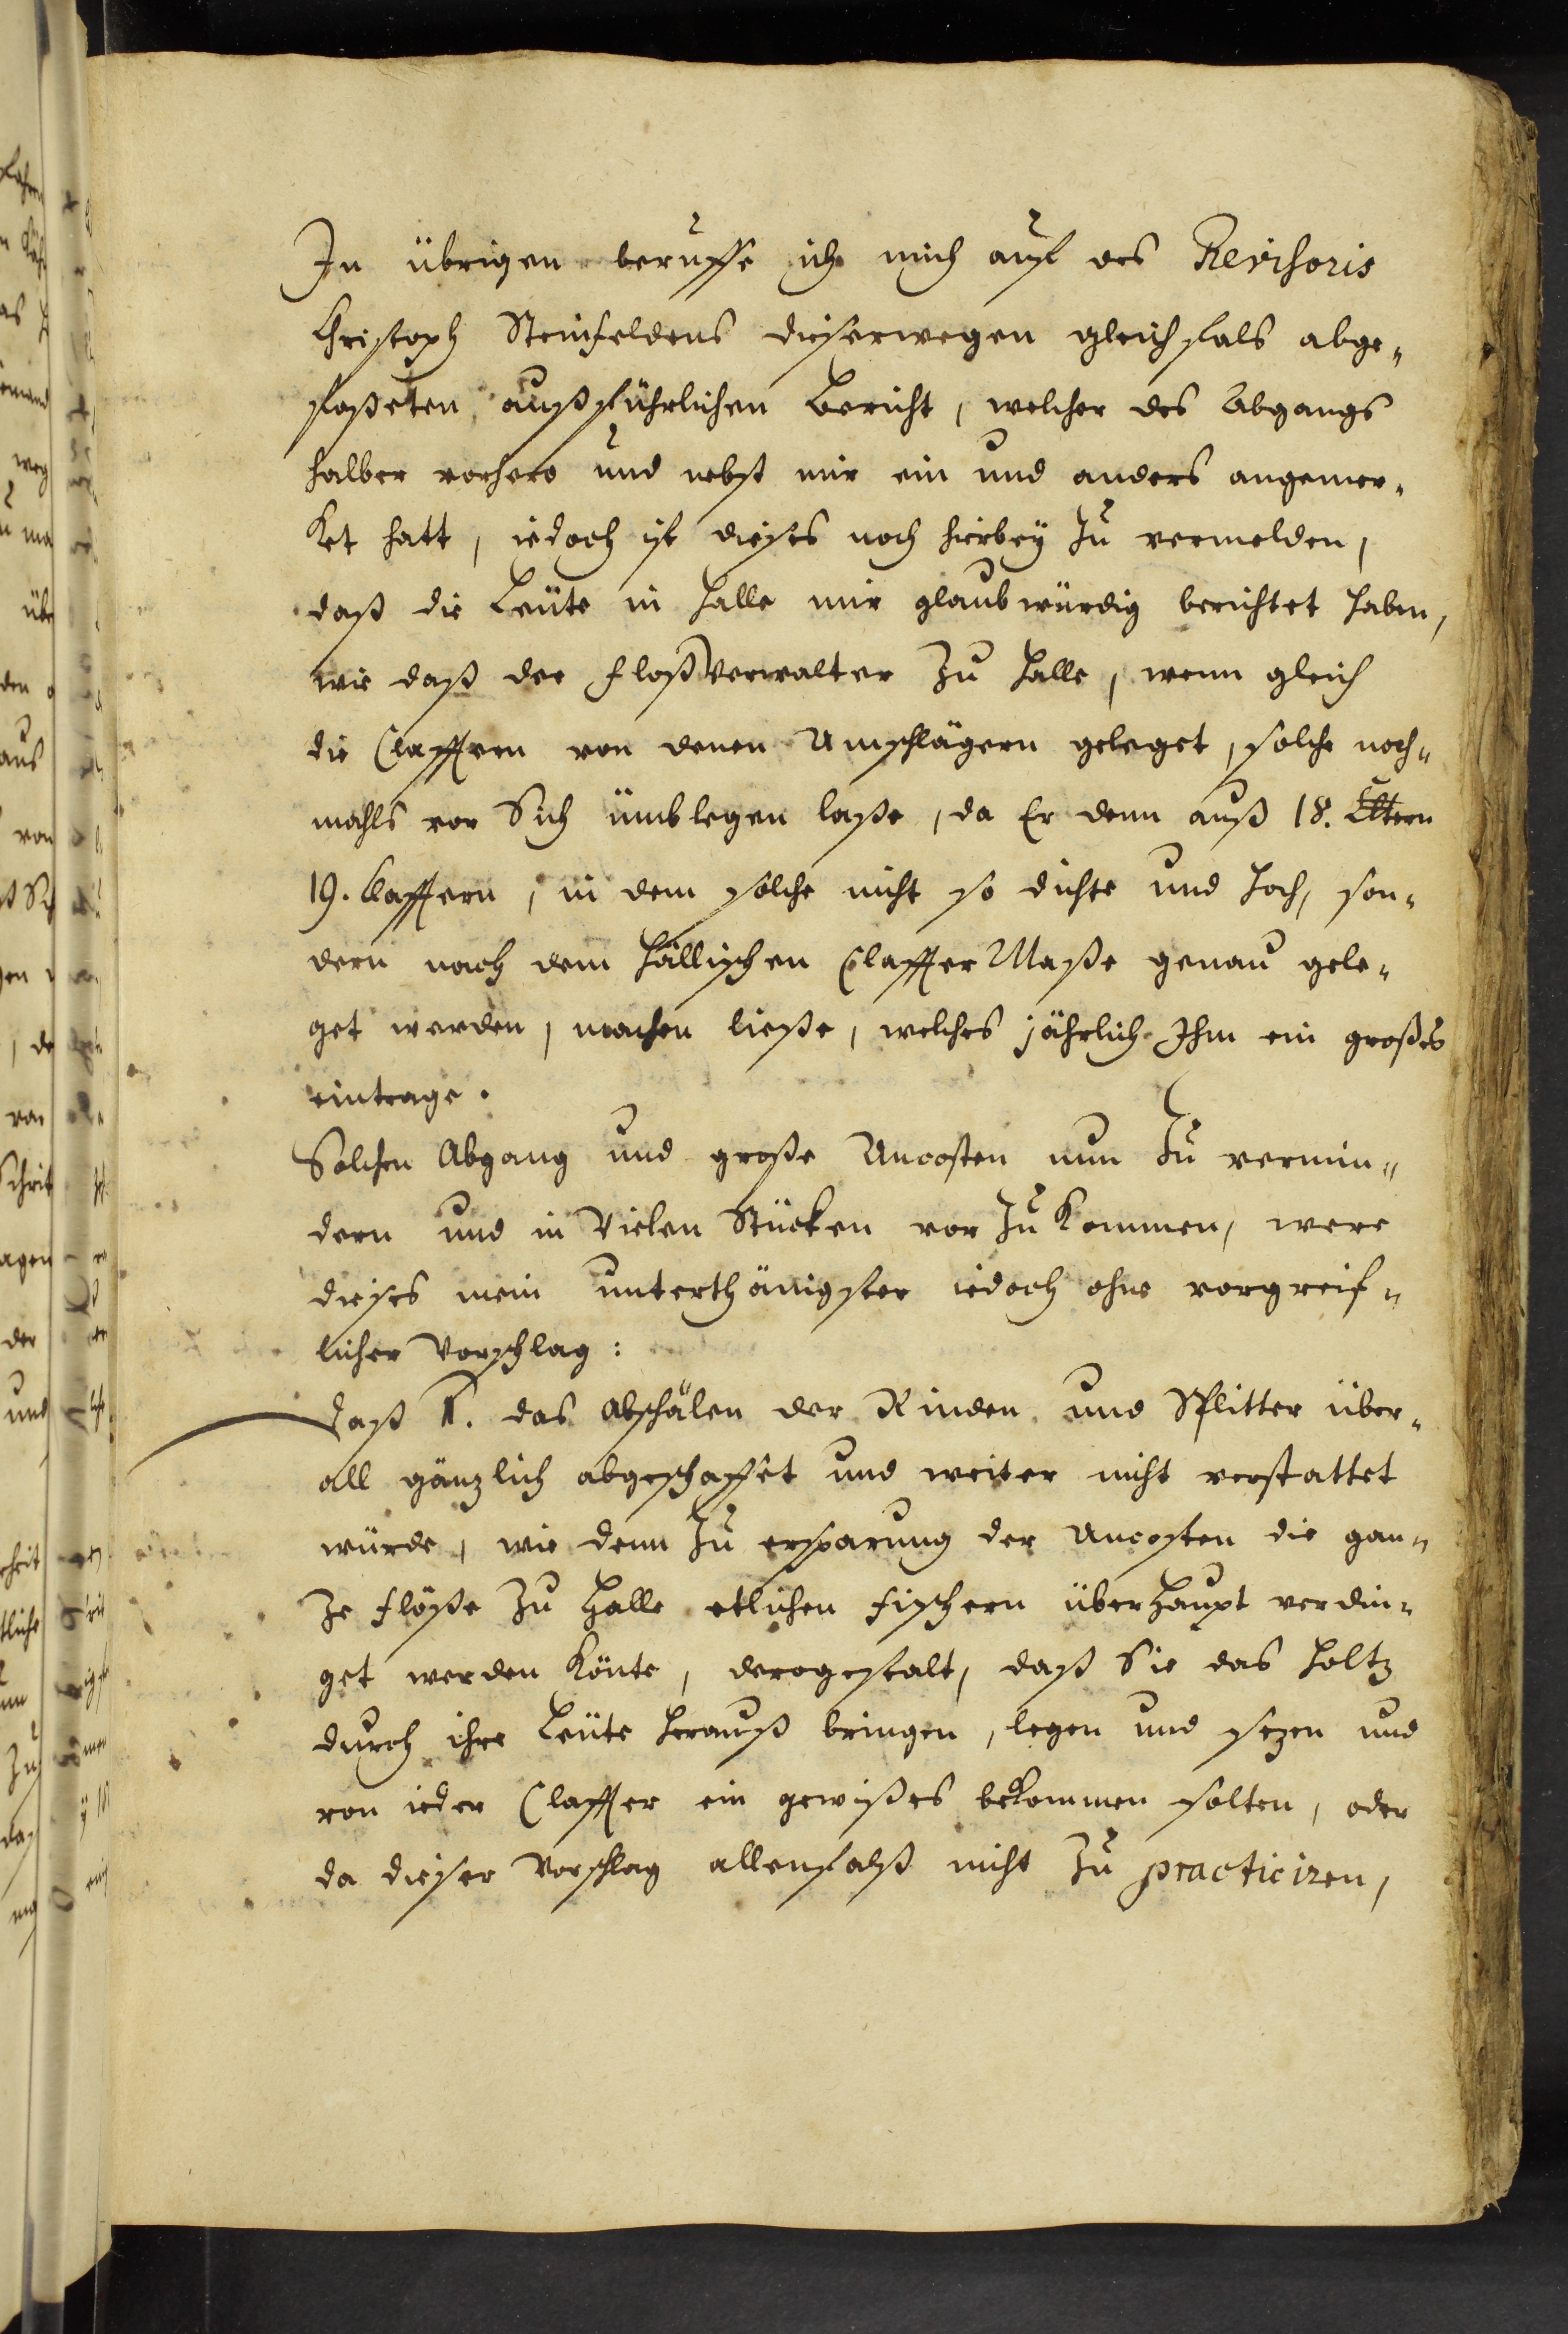 In übrigen beruffe ich mich auf des Revisoris
Christoph Steinfeldens dieserwegen gleichfals abge-
faßeten außführlichen Bericht, welcher des Abgangs
halber vorhero und nebst mir ein und anders angemer-
ket hatt, iedoch ist dieses noch hierbey zu vermelden,
daß die Leüte in Halle mir glaubwürdig berichtet haben,
wie daß der Floßverwalter zu Halle, wenn gleich
die Claffern von denen Umschlägern geleget, solche noch-
mahls vor Sich ümblegen laße, da Er denn auß 18. Clftern
19. Claffern, in dem solche nicht so dichte und hoch, son-
dern nach dem Hällischen Claffter Maße genau gele-
get werden, machen ließe, welches jährlich Ihm ein großes
eintrage.
Solchen Abgang und große Uncosten nun zu vermin-
dern und in Vielen Stücken vor zu kommen, were
dieses mein unterthänigster iedoch ohne vorgreif-
licher Vorschlag:
Daß 1. das Abschälen der Rinden und Splitter über-
all gänzlich abgeschaffet und weiter nicht verstattet
würde, wie denn zu ersparung der Uncosten die gan-
ze Flöße zu Halle etlichen Fischern überhaupt verdin-
get werden könte, derogestalt, daß Sie das Holtz
durch ihre Leüte herauß bringen, legen und sezen und
von ieder Claffter ein gewißes bekommen solten, oder
da dieser Vorschlag allenfalß nicht zu practiciren,